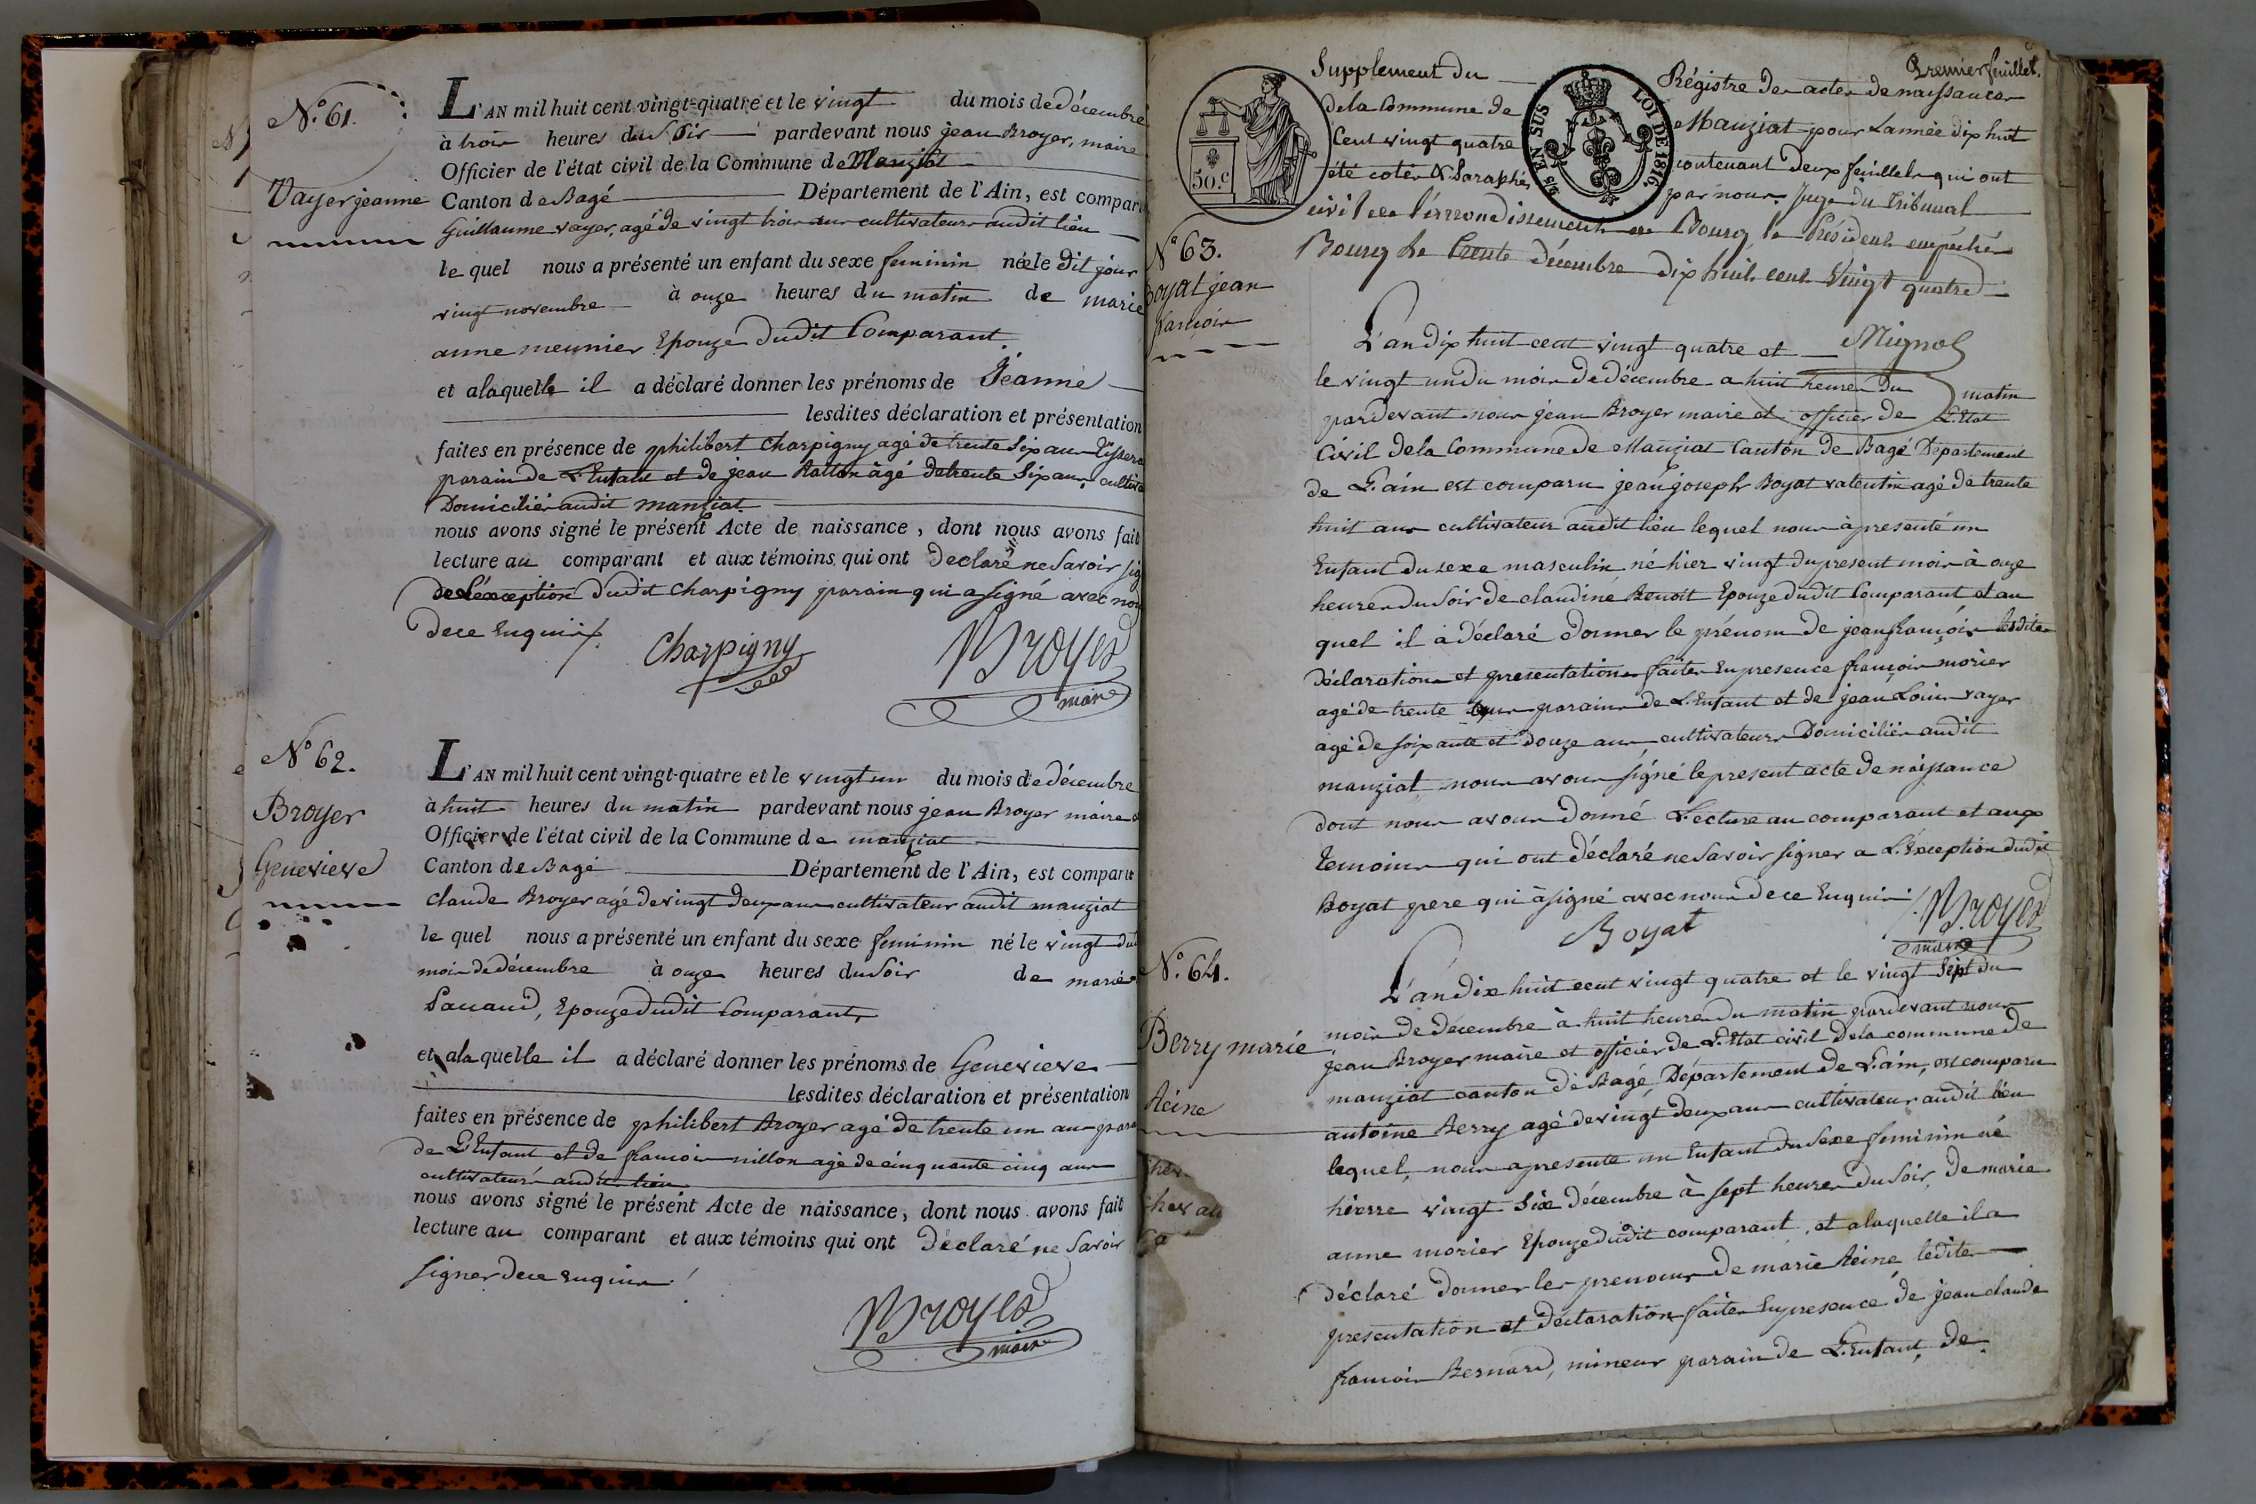 N.° 61.
Vayer jeanne
L'AN mil huit cent vingt-quatre et le vingt du mois de décembre
à trois heures du Soir pardevant nous jean Broyer, maire
Officier de l'état civil de la Commune de Manziat
Canton de Bagé Département de l'Ain, est compar
Guillaume vayer, agé de vingt trois ans cultivateur audit lieu
le quel nous a présenté un enfant du sexe feminin née le dit jour
vingt novembre à onze heures du matin de marie
anne meunier Epouze dudit Comparant
et a laquelle il a déclaré donner les prénoms de Jeanne
lesdites déclaration et présentation
faites en présence de philibert Charpigny agé de trente Six ans
parain de L'Enfant et de jean Ratton âgé de trente Six ans, cultiva
Domiciliés audit manziat
nous avons signé le présent Acte de naissance, dont nous avons fait
lecture au comparant et aux témoins qui ont Declaré ne Savoir sig
de L'éxception dudit Charpigny parain qui a signé avec nous
de ce Enquis.
Charpigny Broyer
maire
N° 62.
Broyer
Genevieve
L'AN mil huit cent vingt-quatre et le vingt un du mois de décembre
à huit heures du matin pardevant nous jean Broyer maire
Officier de l'état civil de la Commune de manziat
Canton de Bagé Département de l'Ain, est comparu
claude Broyer agé de vingt deux ans cultivateur audit manziat
le quel nous a présenté un enfant du sexe feminin né le vingt du
mois de décembre à onze heures du Soir de marie
Pauaud, Epouze dudit Comparant,
et a la quelle il a déclaré donner les prénoms de Genevieve
lesdites déclaration et présentation
faites en présence de philibert Broyer agé de trente un ans para
de L'Enfant et de francois nillon agé de cinquante cinq ans
cultivateurs audit lieu
nous avons signé le présent Acte de naissance, dont nous avons fait
lecture au comparant et aux témoins qui ont Déclaré ne Savoir
signer de ce enquis
Broyer
maire
Premier feuillet.
Supplement du Régistre des actes de naissances
de la Commune de Manziat pour L'année dix huit
Cent vingt quatre contenant deux feuillets qui ont
été cotés & Paraphés par nous Juge du Tribunal
civil de l'arrondissement de Bourg, le Président empêché
Bourg le trente décembre dix huit cent vingt quatre
Mignot
50.C
EN SUS
LOI DE 1816.
N° 63.
Boyat jean
francois
L'an dix huit cent vingt quatre et
le vingt un du mois de décembre a huit heures du matin
pardevant nous jean Broyer maire et officier de L'Etat
Civil de la Commune de Manziat Canton de Bagé Département
de L'ain est comparu jean joseph Boyat valentin agé de trente
huit ans cultivateur audit lieu lequel nous à presenté un
Enfant du sexe masculin né hier vingt du present mois à onze
heures du Soir de claudine Benoit Epouze dudit Comparant et au
quel il à déclaré donner le prénom de jean françois lesdites
déclaration et presentation faites en presence françois morier
agé de trente parain de L'Enfant et de jean Louis vayer
agé de soixante et douze ans cultivateurs Domiciliés audit
manziat nous avons signé le present acte de naissance
dont nous avons donné Lecture au comparant et aux
temoins qui ont déclaré ne Savoir signer a L'Exception dudit
Boyat pere qui à signé avec nous de ce Enquis
Boyat Broyer
maire
N.° 64.
Berry marie
Reine
L'an dix huit cent vingt quatre et le vingt Sept du
mois de decembre à huit heures du matin pardevant nous
jean Broyer maire et officier de L'Etat civil de la commune de
manziat canton de Bagé, Département de L'ain, est comparu
antoine Berry agé de vingt deux ans cultivateur audit lieu
lequel, nous a presenté un Enfant du sexe feminin né
hierre vingt Six décembre à sept heures du Soir, de marie
anne morier Epouze dudit comparant, et a laquelle il a
déclaré donner les prenoms de marie Reine lédites
presentation et déclaration faites En presence de jean claude
francois Bernard, mineur parain de L'Enfant, de